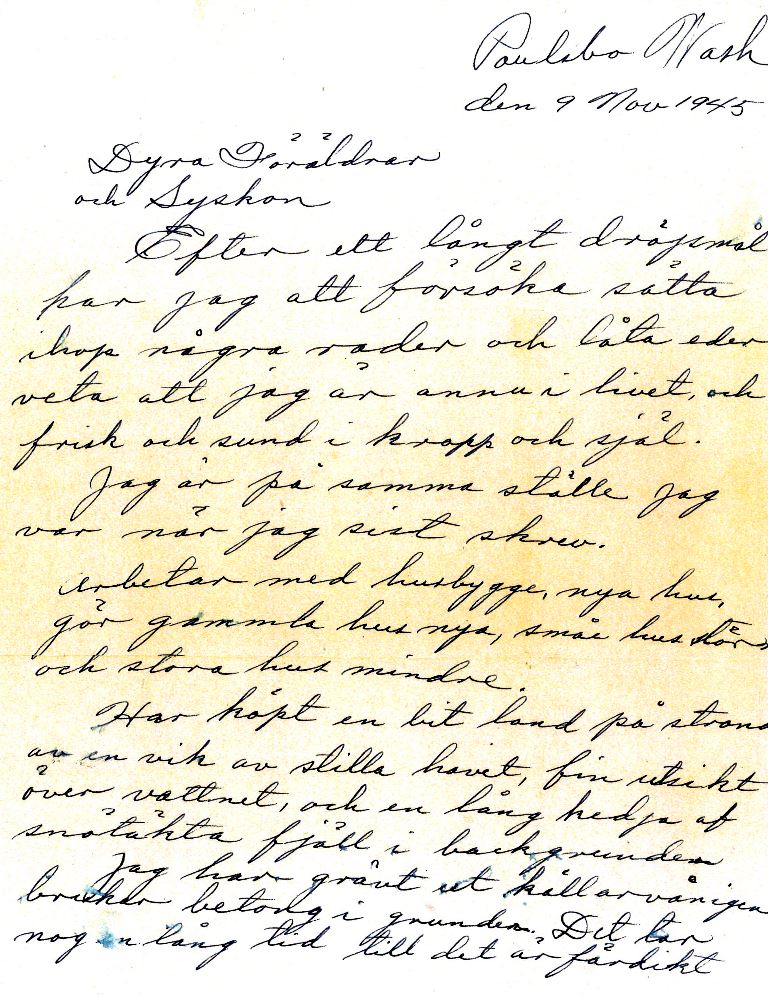 Poulsbo Wash
den 9 Nov 1945
Dyra Föräldrar
och Syskon
Efter ett långt dröjsmål
har jag att försöka sätta
ihop några rader och låta eder
veta att jag är annu i livet, och
frisk och sund i kropp och själ.
Jag är på samma ställe jag
var när jag sist skrev.
arbetar med husbygge, nya hus,
gör gammla hus nya, små hus större
och stora hus mindre.
Har köpt en bit land på strand
av en vik av stilla havet, fin utsikt
över vattnet, och en lång kedja af
snötäkta fjäll i backgrunden
Jag har grävt ut källarvånigen
betong i grunden. Det tar
nog en lång tid till det är färdikt